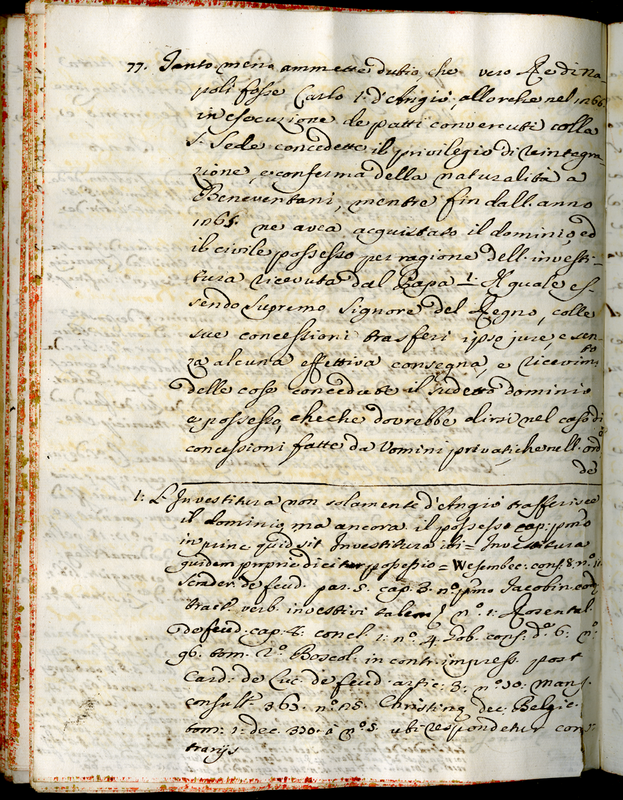 77. Tanto meno ammette dubio, che vero Re di Na-
poli fosse Carlo I. d'Angiò, allorche nel 1266
in esecuzione de patti convenuti colla
S. Sede concedette il privilegio di reintegra-
zione, e conferma della naturalità a
Beneventani, mentre fin dall'anno
1265. ne avea acquistato il dominio, ed
il civile possesso per ragione dell'investi-
tura ricevuta dal Papa 1: Il quale es-
sendo supremo Signore del Regno, colle
sue concessioni trasferì ipso jure, e sen-
za alcuna effettiva consegna, e ricevim.to
delle cose concedute il sudetto dominio
e possesso, cheche dovrebbe dirsi nel caso di
concessioni fatte da Uomini privati, che nell'ord.e
de
1: L'Investitura non solamente trasferisce
il dominio, ma ancora il possesso cap: p.mo
in princ. quid sit Investitura ibi = Investitura
quidem proprie dicitur possessio = Wesembec: cons. 8. n.o
de feud. par. 5. cap. 3. n.o p.mo Jacobin.
tract. verb. investivi talem n.o 1: Rosental.
de feud. cap. concl. 1: n.o 4. cons. 6: n.o
96. tom. 2.o Boscol: in contr. impress. post
Card: de Luc: de feud. artic. 3: n.o 10. Mans.
consult. 363. n.o 15. Christin. dec. Belgic.
tom. 1: dec. 330. n.o 5. ubi respondetur con-
trarijs